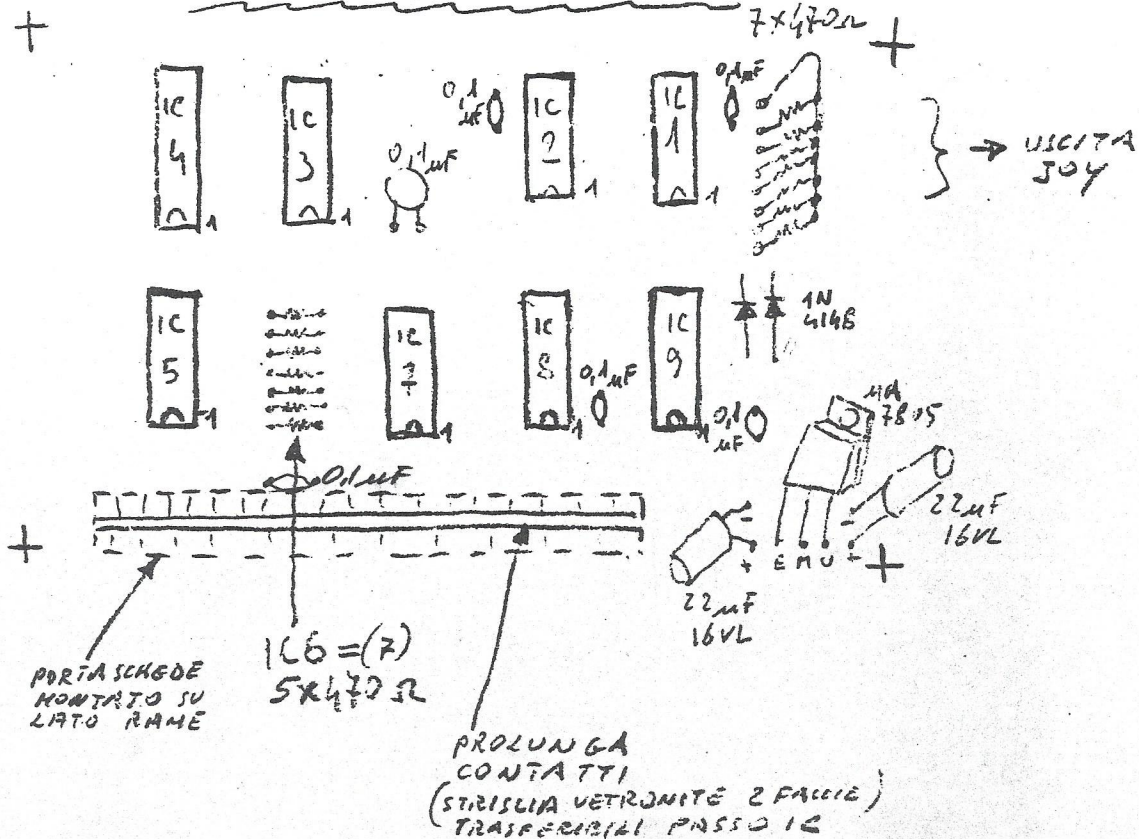 7×470Ω
IC
4
1
IC
3
1
0,1µF
0,1
µF
IC
2
1
IC
1
1
0,1µF
→ USCITA
JOY
IC
5
1
IC
7
1
IC
8
1
0,1µF
IC
9
1
0,1
µF
1N
4148
µA
7805
0,1µF
22µF
16VL
+ E M U +
-
-
22µF
16VL
IC6 = (7)
5×470Ω
PORTASCHEDE
MONTATO SU
LATO RAME
PROLUNGA
CONTATTI
(STRISCIA VETRONITE 2 FACCIE)
TRASFERIBILI PASSO IC